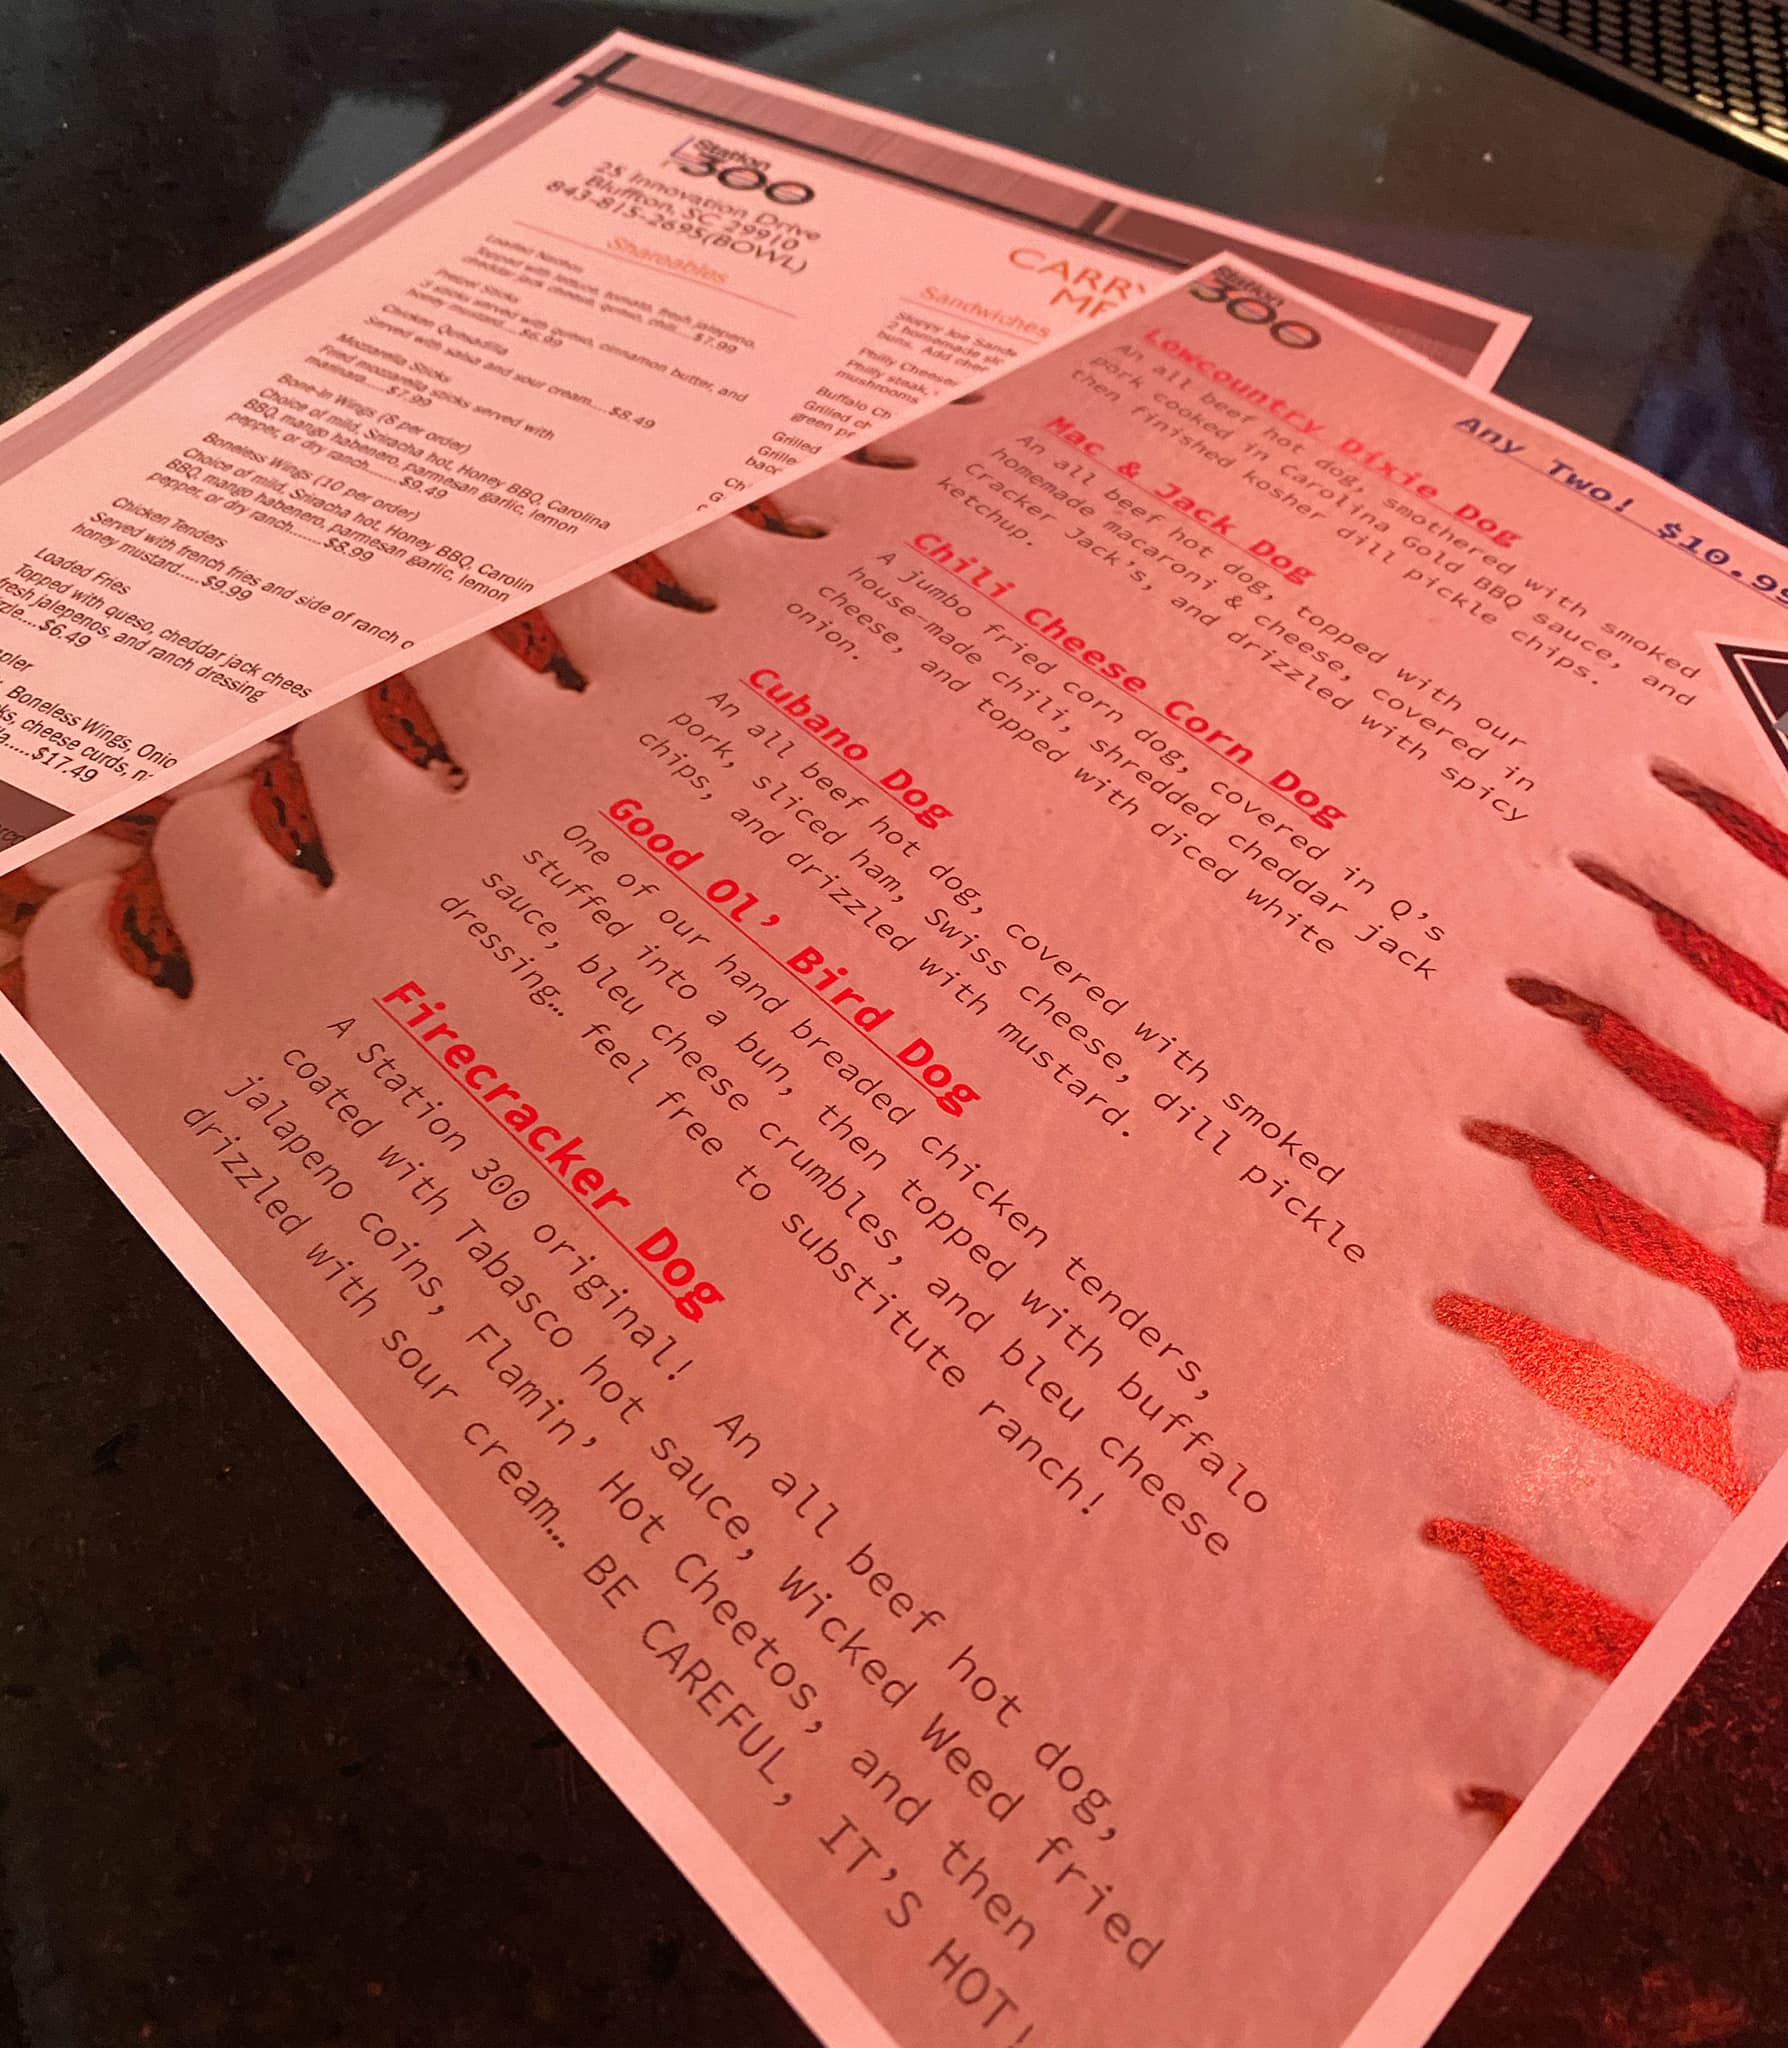 Station
300
25 Innovation Drive
Bluffton, SC 29910
843-815-2695(BOWL)
Shareables
Loaded Nachos
Topped with lettuce, tomato, fresh jalapeno,
cheddar jack cheese, queso, chili....$7.99
Pretzel Sticks
3 sticks served with queso, cinnamon butter, and
honey mustard....$6.99
Chicken Quesadilla
Served with salsa and sour cream....$8.49
Mozzarella Sticks
Fried mozzarella sticks served with
marinara.....$7.99
Bone-in Wings (8 per order)
Choice of mild, Sriracha hot, Honey BBQ, Carolina
BBQ, mango habenero, parmesan garlic, lemon
pepper, or dry ranch......$9.49
Boneless Wings (10 per order)
Choice of mild, Sriracha hot, Honey BBQ, Carolin
BBQ, mango habenero, parmesan garlic, lemon
pepper, or dry ranch......$8.99
Chicken Tenders
Served with french fries and side of ranch o
honey mustard.....$9.99
Loaded Fries
Topped with queso, cheddar jack chees
fresh jalepenos, and ranch dressing
zle....$6.49
pler
Boneless Wings, Onio
ks, cheese curds, n
la.....$17.49
CARRY
ME
Sandwiches
Sloppy Joe Sand
2 homemade sl
buns. Add chee
Philly Cheeses
Philly steak,
mushrooms
Buffalo Ch
Grilled ch
green pe
Grilled
Grille
bacc
Ch
G
Station
300
Any Two! $10.99
Lowcountry Dixie Dog
An all beef hot dog, smothered with smoked
pork cooked in Carolina Gold BBQ sauce, and
then finished kosher dill pickle chips.
Mac & Jack Dog
An all beef hot dog, topped with our
homemade macaroni & cheese, covered in
Cracker Jack's, and drizzled with spicy
ketchup.
Chili Cheese Corn Dog
A jumbo fried corn dog, covered in Q's
house-made chili, shredded cheddar jack
cheese, and topped with diced white
onion.
Cubano Dog
An all beef hot dog, covered with smoked
pork, sliced ham, Swiss cheese, dill pickle
chips, and drizzled with mustard.
Good Ol' Bird Dog
One of our hand breaded chicken tenders,
stuffed into a bun, then topped with buffalo
sauce, bleu cheese crumbles, and bleu cheese
dressing… feel free to substitute ranch!
Firecracker Dog
A Station 300 original! An all beef hot dog,
coated with Tabasco hot sauce, Wicked Weed fried
jalapeno coins, Flamin' Hot Cheetos, and then
drizzled with sour cream… BE CAREFUL, IT'S HOT!